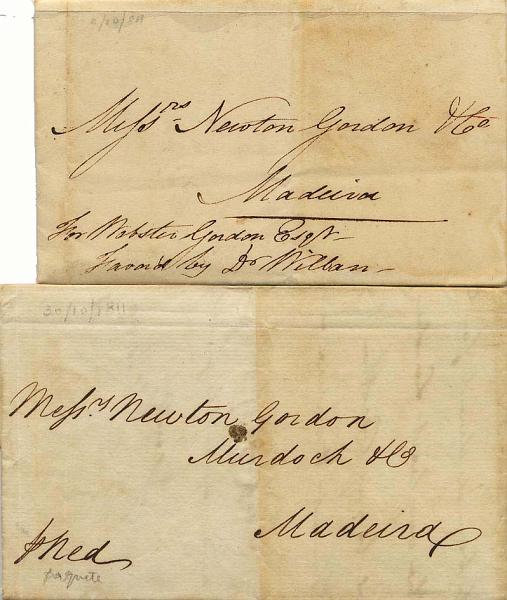 Messrs Newton Gordon & Co
Madeira
For Webster Gordon Esqr
Favor'd by Dr Willan
30/10/1811
Messrs Newton Gordon
Murdoch & Co
Madeira
pr Ned